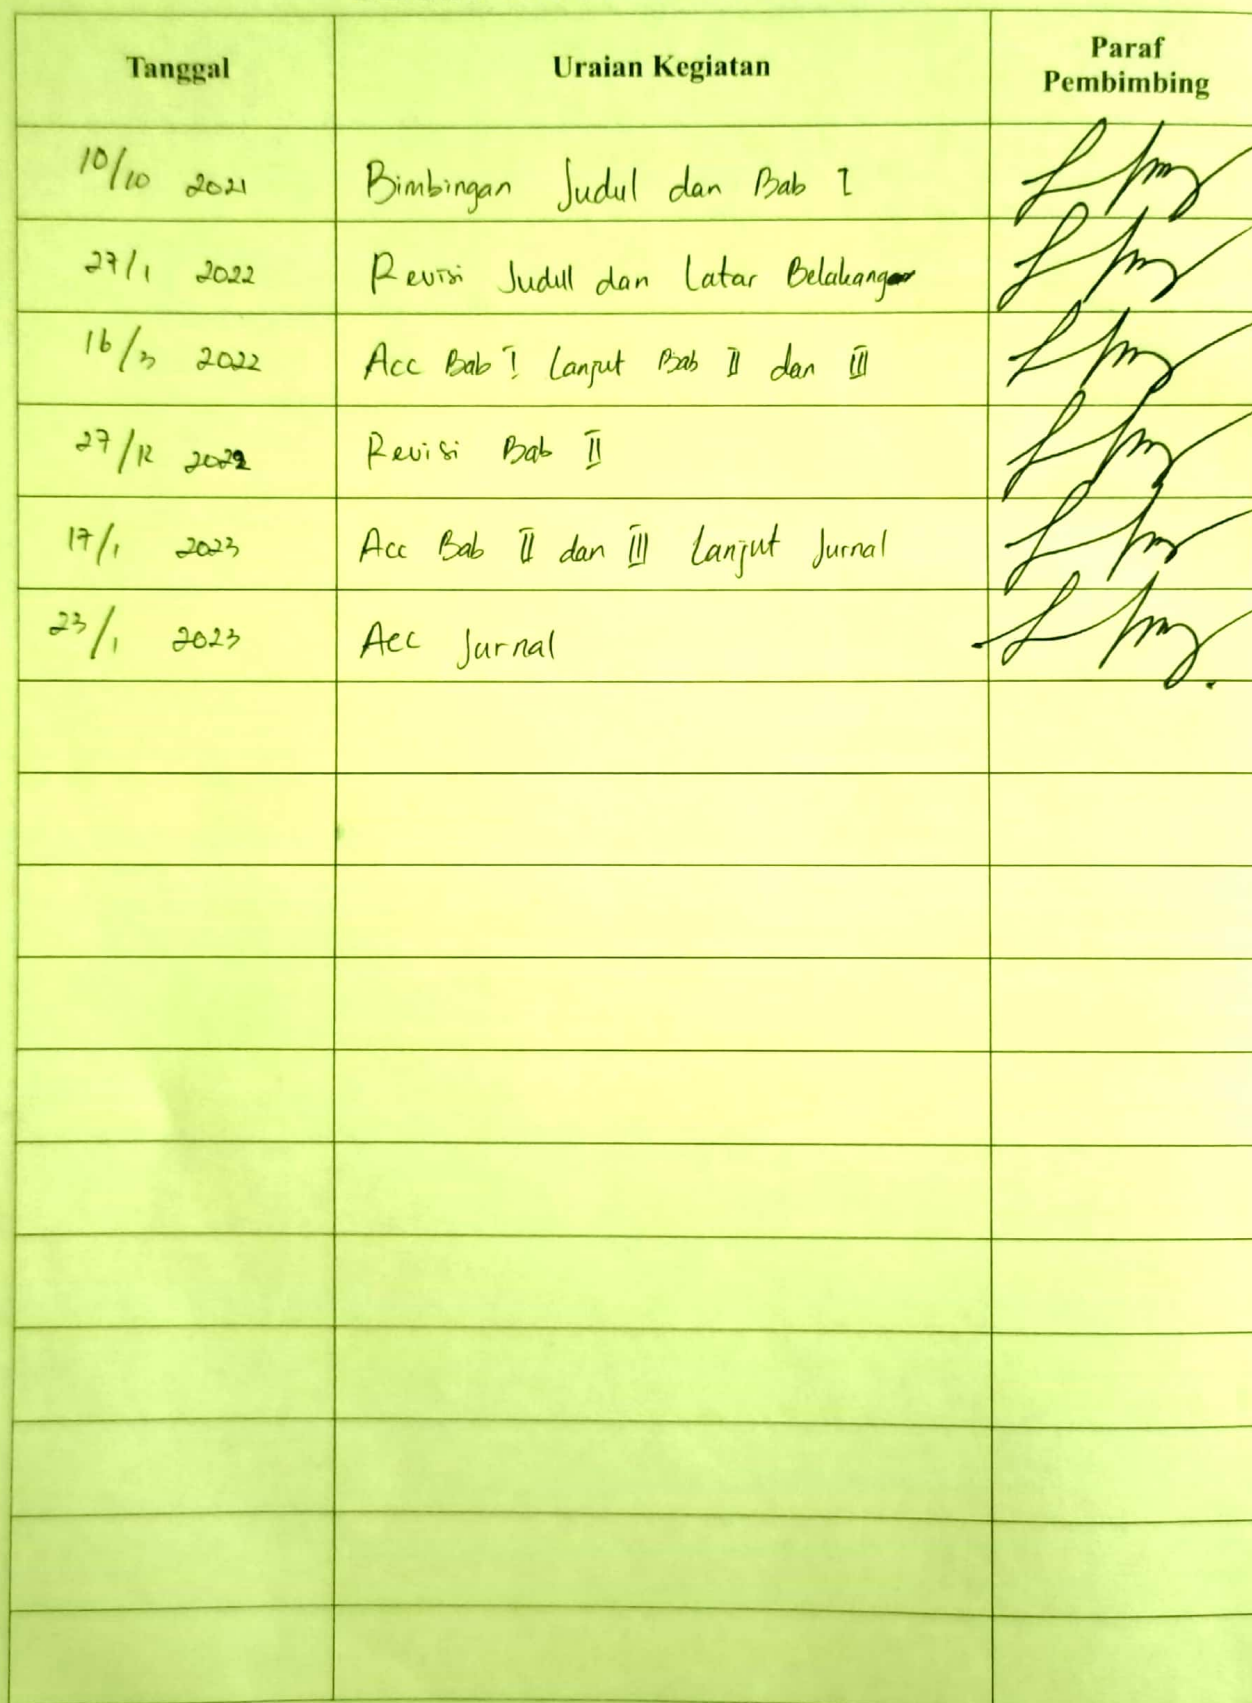 Tanggal Uraian Kegiatan Paraf
Pembimbing
10/10 2021 Bimbingan Judul dan Bab I
27/1 2022 Revisi Judul dan Latar Belakang
16/3 2022 Acc Bab I Lanjut Bab II dan III
27/12 2022 Revisi Bab II
17/1 2023 Acc Bab II dan III Lanjut Jurnal
23/1 2023 Acc Jurnal